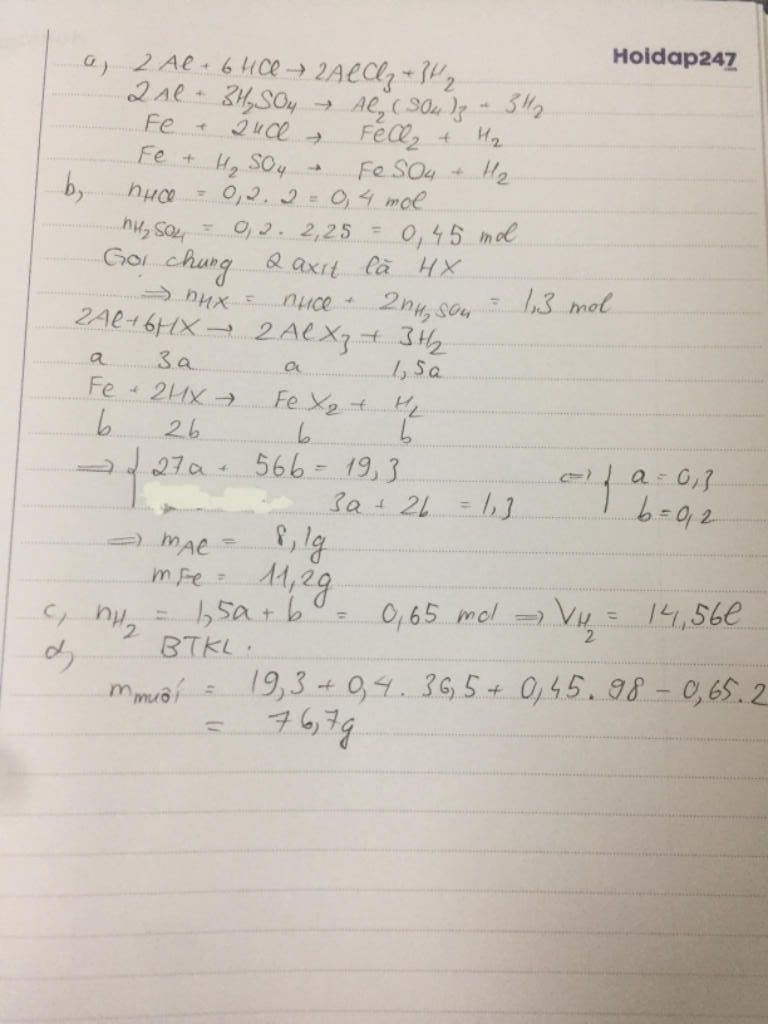 Hoidap247
a, 2Al + 6HCl → 2AlCl₃ + 3H₂
2Al + 3H₂SO₄ → Al₂(SO₄)₃ + 3H₂
Fe + 2HCl → FeCl₂ + H₂
Fe + H₂SO₄ → FeSO₄ + H₂
b, nHCl = 0,2. 2 = 0,4 mol
nH₂SO₄ = 0,2. 2,25 = 0,45 mol
Gọi chung 2 axit là HX
=> nHX = nHCl + 2nH₂SO₄ = 1,3 mol
2Al + 6HX → 2AlX₃ + 3H₂
a 3a a 1,5a
Fe + 2HX → FeX₂ + H₂
b 2b b b
=> { 27a + 56b = 19,3 <=> { a = 0,3
3a + 2b = 1,3 b = 0,2
=> mAl = 8,1g
mFe = 11,2g
c, nH₂ = 1,5a + b = 0,65 mol => VH₂ = 14,56l
d, BTKL.
mmuối = 19,3 + 0,4. 36,5 + 0,45. 98 − 0,65. 2
= 76,7g